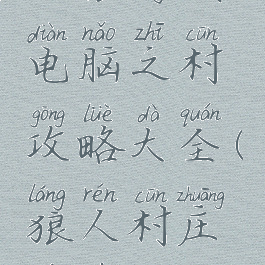 diàn nǎo zhī cūn
电脑之村
gōng lüè dà quán
攻略大全(
láng rén cūn zhuāng
狼人村庄